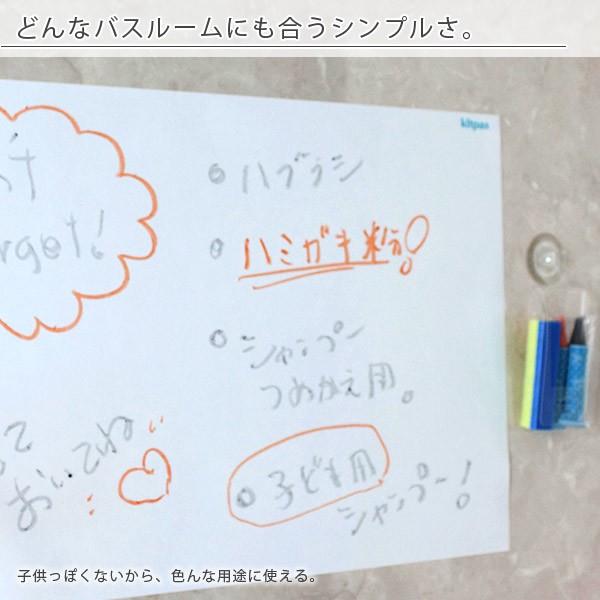 どんなバスルームにも合うシンプルさ。
kitpas
rget!
ハブラシ
ハミガキ粉!
シャンプー
つめかえ用。
子ども用
シャンプー!
おいてね
子供っぽくないから、色んな用途に使える。